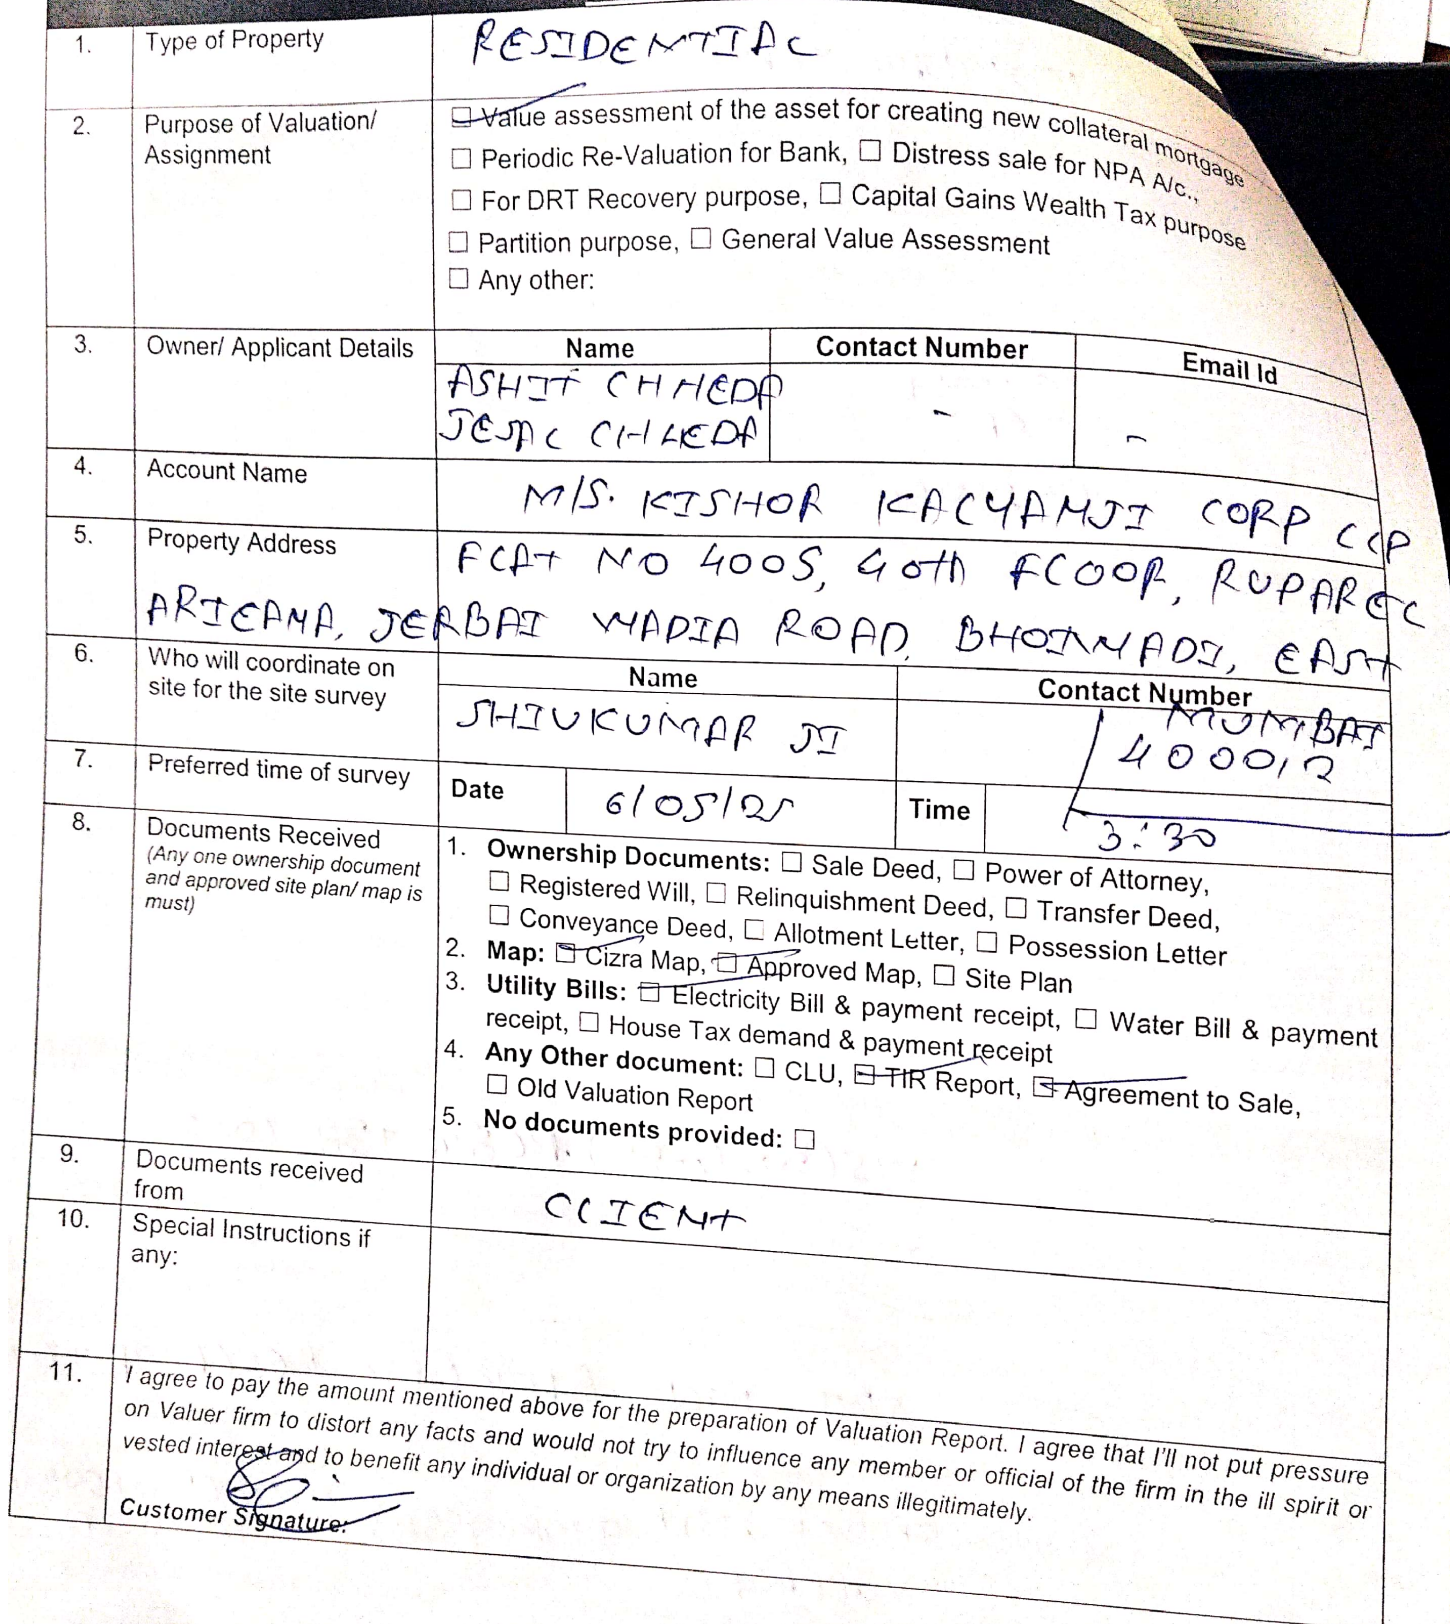 1. Type of Property RESIDENTIAL
2. Purpose of Valuation/ Assignment
☑ Value assessment of the asset for creating new collateral mortgage
☐ Periodic Re-Valuation for Bank, ☐ Distress sale for NPA A/c.,
☐ For DRT Recovery purpose, ☐ Capital Gains Wealth Tax purpose
☐ Partition purpose, ☐ General Value Assessment
☐ Any other:
3. Owner/ Applicant Details Name Contact Number Email Id
ASHIT CHHEDA - -
JESAL CHHEDA
4. Account Name M/S. KISHOR KALYANJI CORP LLP
5. Property Address FLAT NO 4005, 40th FLOOR, RUPAREL
ARIEANA, JERBAI WADIA ROAD, BHOIWADI, EAST
MUMBAI
400012
6. Who will coordinate on site for the site survey Name Contact Number
SHIVKUMAR JI
7. Preferred time of survey Date 6/05/25 Time 3:30
8. Documents Received
(Any one ownership document
and approved site plan/ map is
must)
1. Ownership Documents: ☐ Sale Deed, ☐ Power of Attorney,
☐ Registered Will, ☐ Relinquishment Deed, ☐ Transfer Deed,
☐ Conveyance Deed, ☐ Allotment Letter, ☐ Possession Letter
2. Map: ☑ Cizra Map, ☑ Approved Map, ☐ Site Plan
3. Utility Bills: ☑ Electricity Bill & payment receipt, ☐ Water Bill & payment
receipt, ☐ House Tax demand & payment receipt
4. Any Other document: ☐ CLU, ☑ TIR Report, ☑ Agreement to Sale,
☐ Old Valuation Report
5. No documents provided: ☐
9. Documents received from CLIENT
10. Special Instructions if any:
11. I agree to pay the amount mentioned above for the preparation of Valuation Report. I agree that I'll not put pressure
on Valuer firm to distort any facts and would not try to influence any member or official of the firm in the ill spirit or
vested interest and to benefit any individual or organization by any means illegitimately.
Customer Signature: